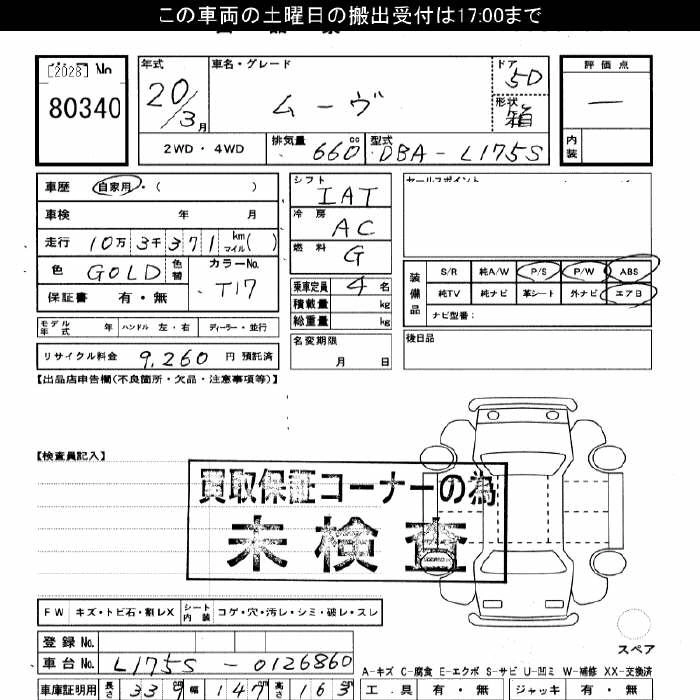 この車両の土曜日の搬出受付は17:00まで
[2028] No
80340
年式 20/3月
車名・グレード ムーヴ
ドア 5D
形状 箱
評価点 —
内装
2WD・4WD
排気量 660 cc
型式 DBA-L175S
車歴 自家用・( )
車検 年 月
走行 10万3千371 km マイル( )
色 GOLD 色替
カラーNo. T17
保証書 有・無
モデル年式 年 ハンドル 左・右 ディーラー・並行
リサイクル料金 9,260 円 預託済
シフト IAT
冷房 AC
燃料 G
乗車定員 4 名
積載量 kg
総重量 kg
名変期限 月 日
セールスポイント
装備品
S/R 純A/W P/S P/W ABS
純TV 純ナビ 革シート 外ナビ エアB
ナビ型番:
後日品
【出品店申告欄(不良箇所・欠品・注意事項等)】
【検査員記入】
買取保証コーナーの為
未検査
FW キズ・トビ石・割レX シート内装 コゲ・穴・汚レ・シミ・破レ・スレ
スペア
登録No.
車台No. L175S-0126860
A-キズ C-腐食 E-エクボ S-サビ U-凹ミ W-補修 XX-交換済
車庫証明用 長さ 339 幅 147 高さ 163
工具 有・無 ジャッキ 有・無